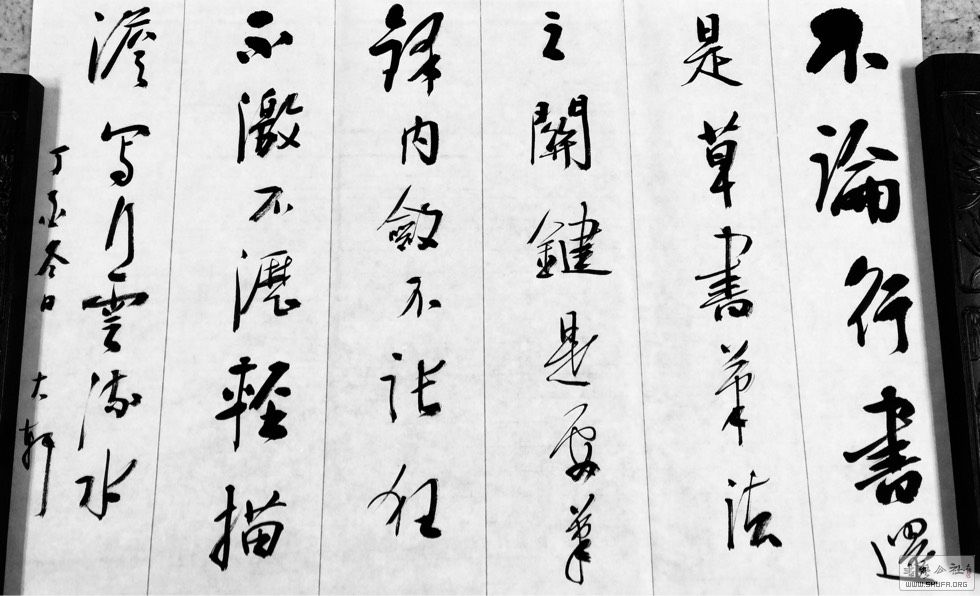 不論行書還
是草書筆法
之關鍵是要筆
鋒内斂不張狂
不激不瀝輕描
淡寫行雲流水
丁酉冬日 大軒
書學公社
WWW.SHUFA.ORG